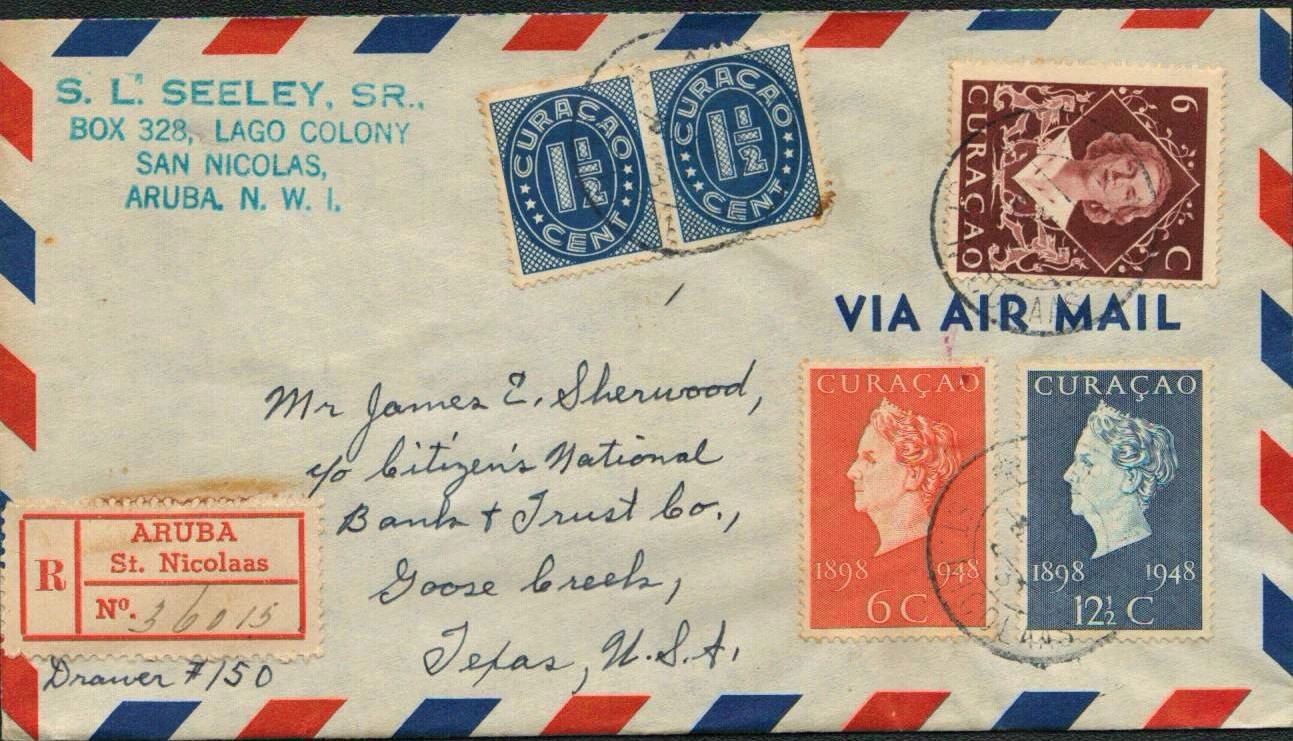 S. L. SEELEY, SR.,
BOX 328, LAGO COLONY
SAN NICOLAS,
ARUBA. N. W. I.
CURAÇAO
1½
CENT
CURAÇAO
1½
CENT
6 C
CURAÇAO
VIA AIR MAIL
Mr James E. Sherwood,
c/o Citizen's National
Bank & Trust Co.,
Goose Creek,
Texas, U.S.A.
CURAÇAO
1898 1948
6 C
CURAÇAO
1898 1948
12½ C
R
ARUBA
St. Nicolaas
Nº. 36015
Drawer #150